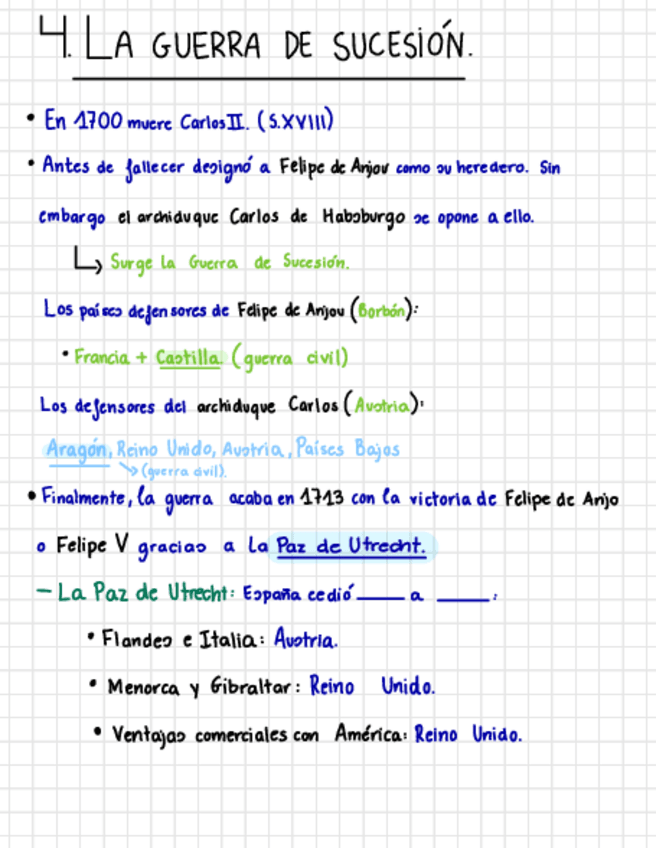 4. LA GUERRA DE SUCESIÓN.
• En 1700 muere Carlos II. (S.XVIII)
• Antes de fallecer designó a Felipe de Anjou como su heredero. Sin
embargo el archiduque Carlos de Habsburgo se opone a ello.
↳ Surge la Guerra de Sucesión.
Los países defensores de Felipe de Anjou (Borbón):
• Francia + Castilla. (guerra civil)
Los defensores del archiduque Carlos (Austria):
Aragón, Reino Unido, Austria, Países Bajos
↘ (guerra civil).
• Finalmente, la guerra acaba en 1713 con la victoria de Felipe de Anjo
o Felipe V gracias a la Paz de Utrecht.
– La Paz de Utrecht: España cedió ____ a ____:
• Flandes e Italia: Austria.
• Menorca y Gibraltar: Reino Unido.
• Ventajas comerciales con América: Reino Unido.